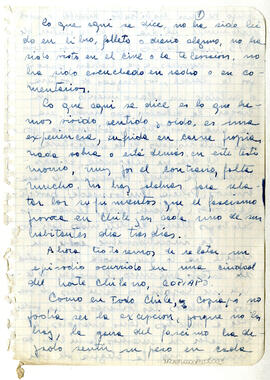 1
Lo que aqui se dice, no ha sido lei
do en libro, folleto o diario alguno, no ha
sido visto en el cine o la television, no
ha sido escuchado en radio o en co-
mentarios.
Lo que aqui se dice es lo que he-
mos vivido, sentido, oido, es una
experiencia, sufrida en carne propia
nada sobra o está demás en este testi
monio, muy por el contrario, falta
mucho. No hay letras para rela
tar los sufrimientos que el fascismo
provoca en Chile, en cada uno de sus
habitantes dia tras dia.
Ahora trataremos de relatar un
episodio ocurrido en una ciudad
del norte chileno, COPIAPÓ
Como en todo Chile, copiapó no
podia ser la excepcion, porque no las
hay, la garra del fascismo ha de-
jado sentir su peso en cada